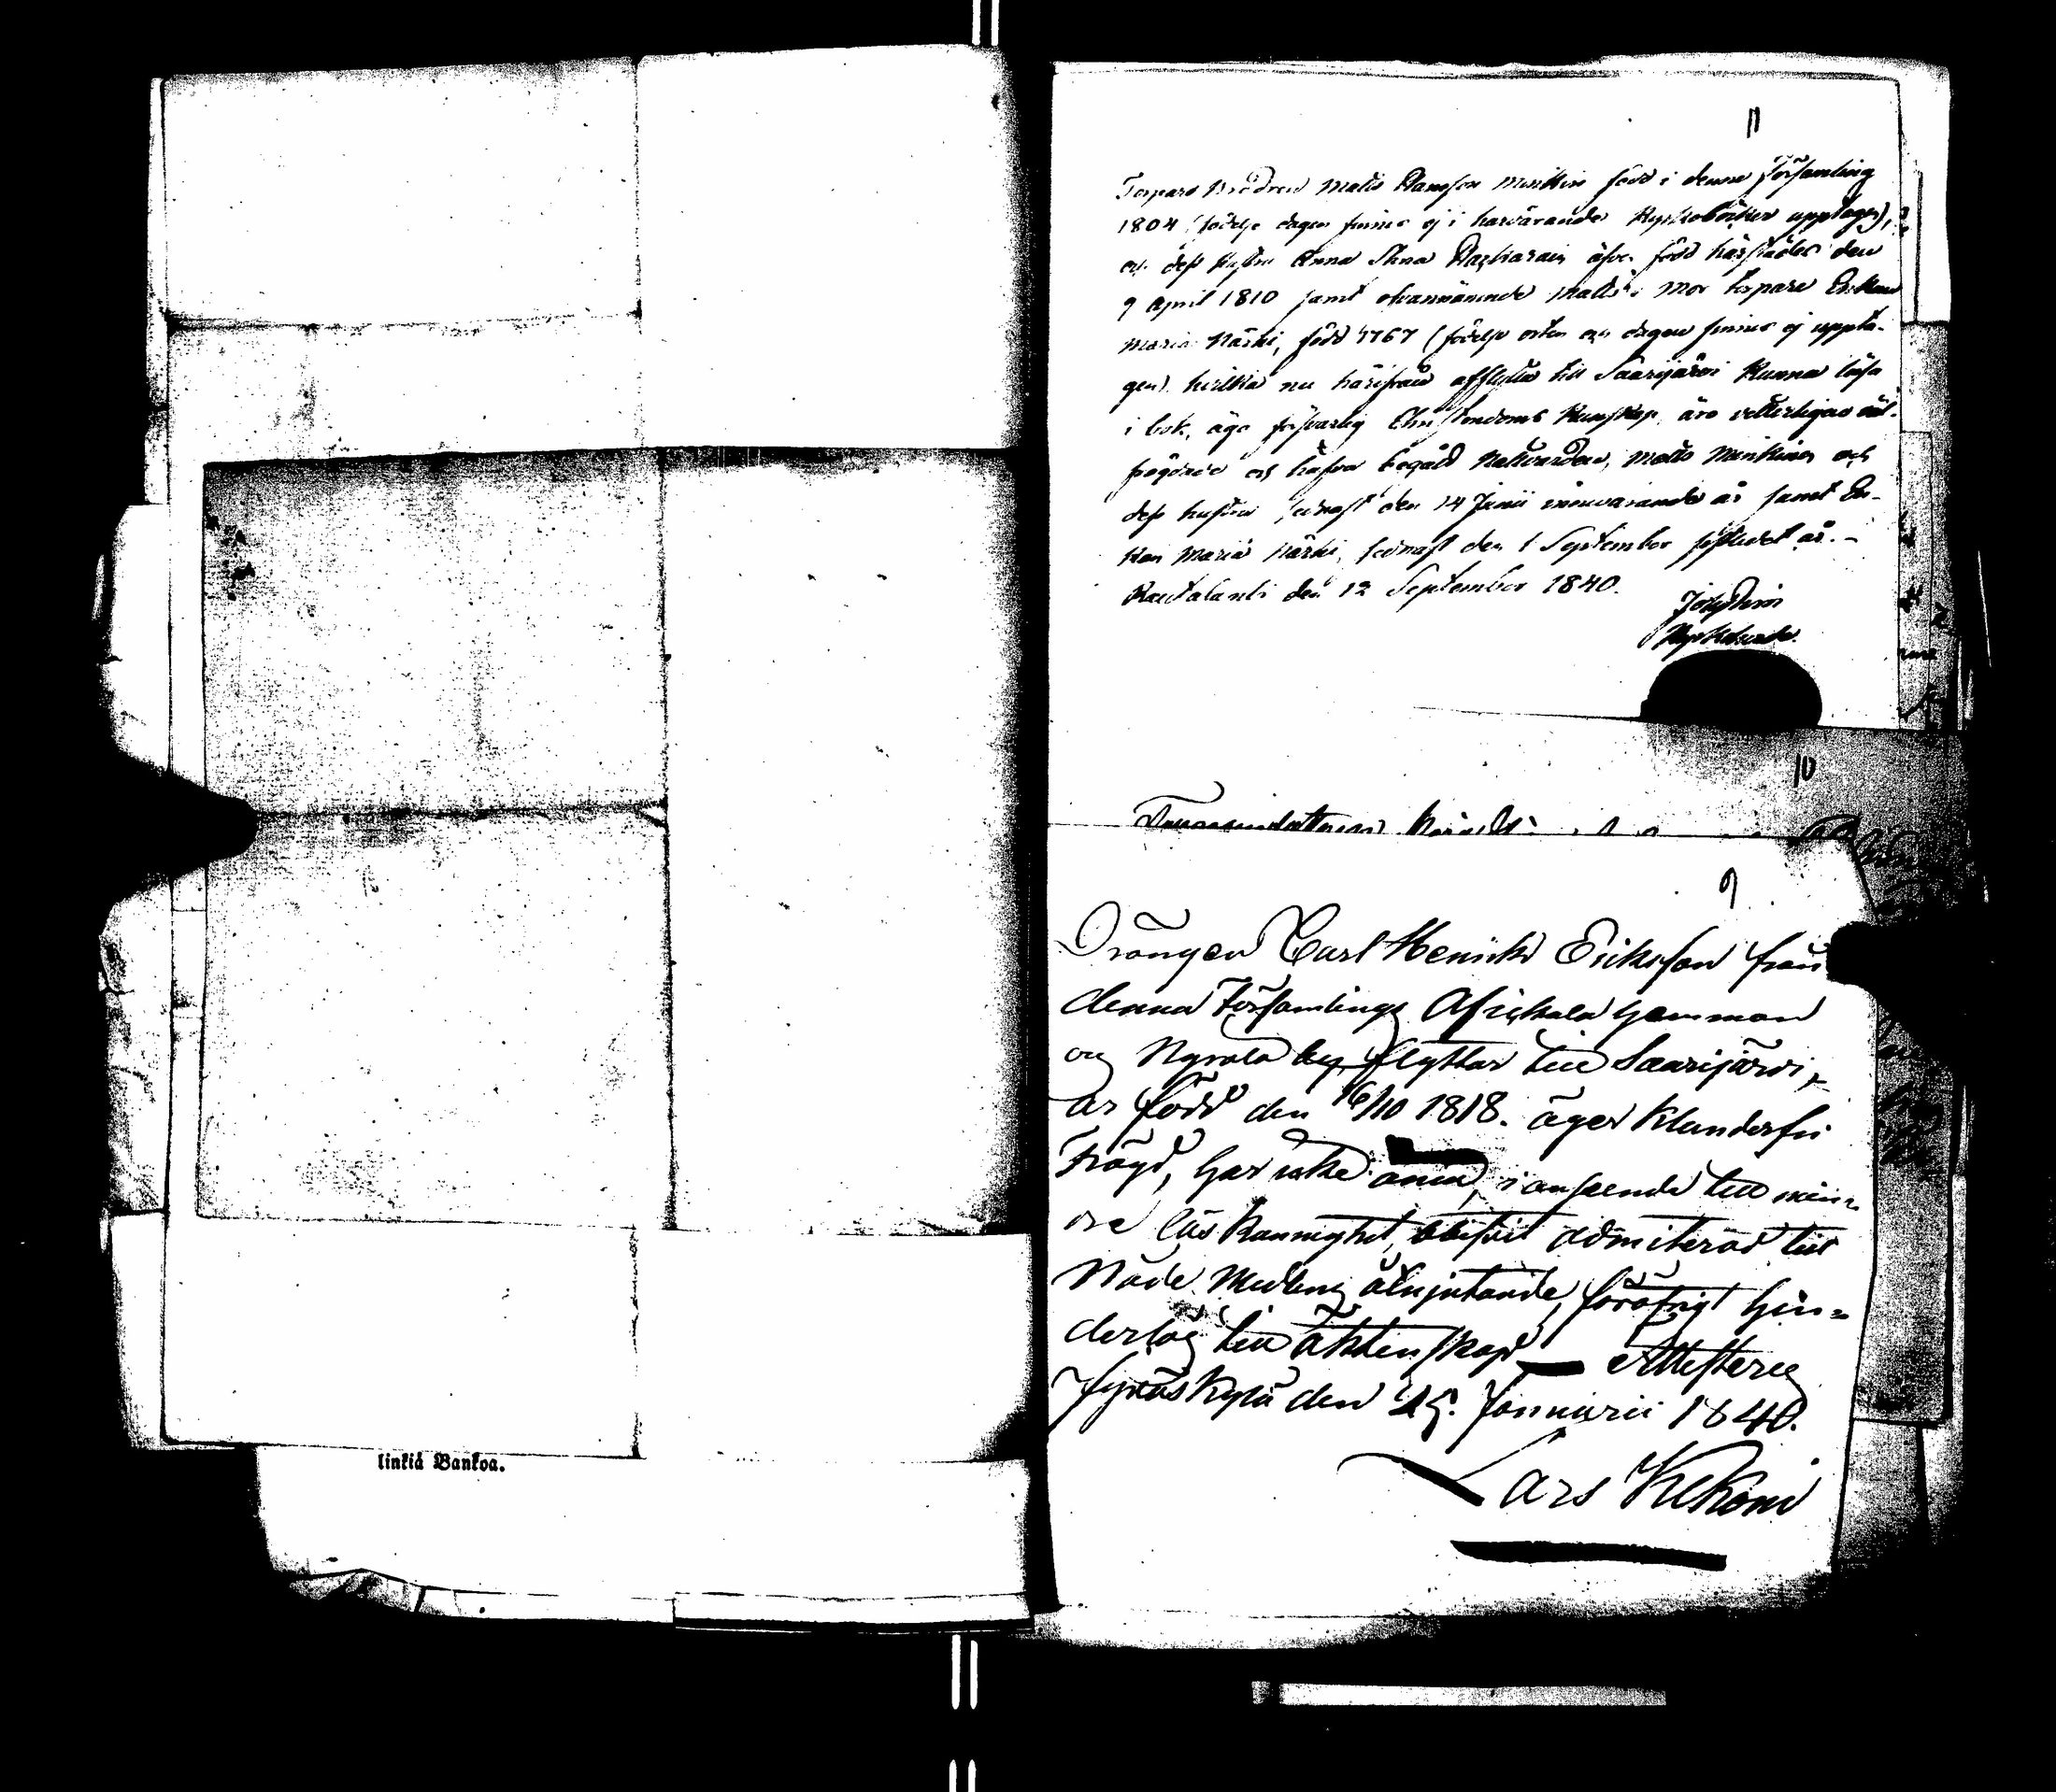 linkiá Bankoa.
11
Torpare Brodren Matts Hansson Minkin född i denna Församling
1804 (födelse dagen finnes ej i härvarande Kyrkoböcker upptagen),
och dess Hustru Anna Stina äfven född härstädes den
9 April 1810 samt ofvannämnde Matts's Mor torpare Enkan
Maria Närhi, född 1767 (födelse orten och dagen finnes ej uppta-
gen). hvilka nu härifrån afflytta till Saarijärvi Kunna läsa
i bok, äga försvarlig Christendoms Kunskap, äro vetterligen väl-
frägdade och hafva begått Nattvarden, Matts Minkinen och
dess hustru sednast den 14 Junii innevarande år samt En-
kan Maria Närhi, sednast den 1 September sistledet år. -
Rautalambi den 12 September 1840.
10
9
Drängen Carl Henrik Eriksson från
denna Församlings hemman
och by flyttar till Saarijärvi,
är född den 16/10 1818. äger Klanderfri
Frägd, har icke ännu, i anseende till min=
dre läs kunnighet, blifvit admiterad till
Nåde Medlens åtnjutande, föröfrigt hin=
derlös till äktenskap — Attesterar
Jyväskylä den 25. Januarii 1840.
Lars Kekoni